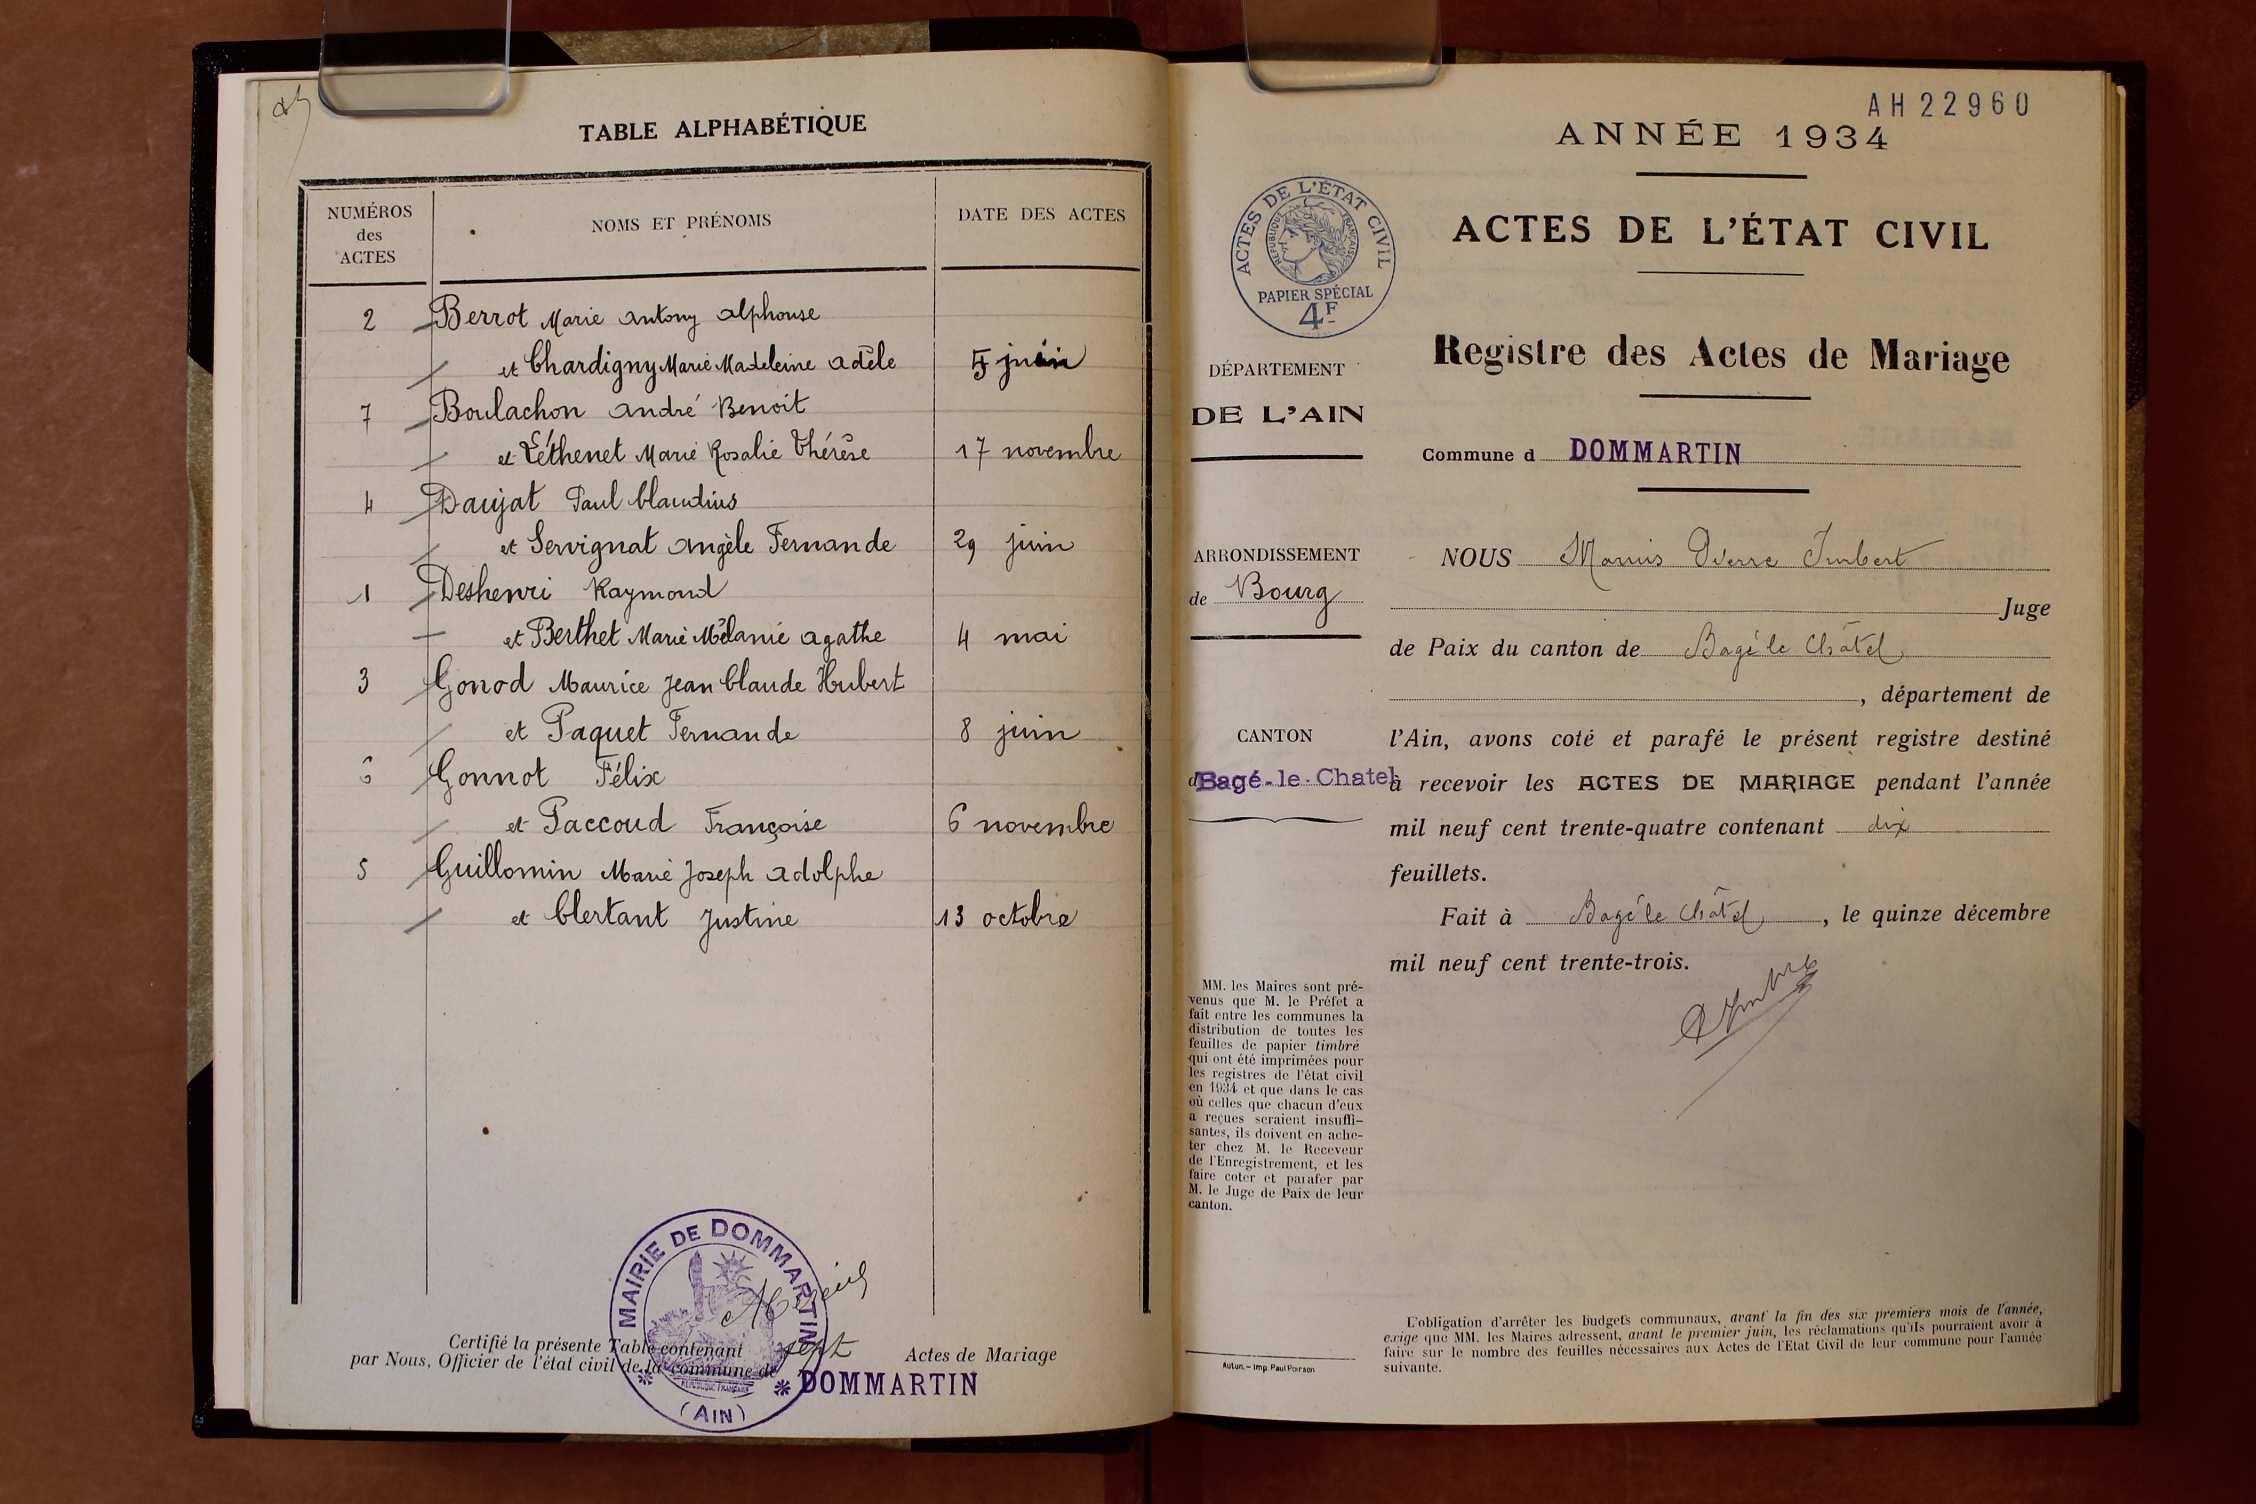 TABLE ALPHABÉTIQUE
NUMÉROS
des
ACTES
NOMS ET PRÉNOMS
DATE DES ACTES
2 Berrot Marie Antony Alphonse
et Chardigny Marie Madeleine Adèle 5 juin
7 Boulachon André Benoit
et Léthenet Marie Rosalie Thérèse 17 novembre
4 Daujat Paul Claudius
et Servignat Angèle Fernande 29 juin
1 Deshenri Raymond
et Berthet Marie Mélanie Agathe 4 mai
3 Gonod Maurice Jean Claude Hubert
et Paquet Fernande 8 juin
6 Gonnot Félix
et Paccoud Françoise 6 novembre
5 Guillomin Marie Joseph Adolphe
et Clertant Justine 13 octobre
MAIRIE DE DOMMARTIN
(AIN)
Certifié la présente Table contenant sept Actes de Mariage
par Nous, Officier de l'état civil de la commune de DOMMARTIN
AH22960
ANNÉE 1934
ACTES DE L'ÉTAT CIVIL
RÉPUBLIQUE FRANÇAISE
PAPIER SPÉCIAL
4F
ACTES DE L'ÉTAT CIVIL
Registre des Actes de Mariage
DÉPARTEMENT
DE L'AIN
Commune d DOMMARTIN
ARRONDISSEMENT
de Bourg
CANTON
d Bagé-le-Chatel
NOUS Marius Pierre Imbert
Juge
de Paix du canton de Bagé le Châtel
, département de
l'Ain, avons coté et parafé le présent registre destiné
à recevoir les ACTES DE MARIAGE pendant l'année
mil neuf cent trente-quatre contenant dix
feuillets.
Fait à Bagé le Châtel, le quinze décembre
mil neuf cent trente-trois.
MM. les Maires sont pré-
venus que M. le Préfet a
fait entre les communes la
distribution de toutes les
feuilles de papier timbré
qui ont été imprimées pour
les registres de l'état civil
en 1934 et que dans le cas
où celles que chacun d'eux
a reçues seraient insuffi-
santes, ils doivent en ache-
ter chez M. le Receveur
de l'Enregistrement, et les
faire coter et parafer par
M. le Juge de Paix de leur
canton.
Autun. - Imp. Paul Poirson
L'obligation d'arrêter les Budgets communaux, avant la fin des six premiers mois de l'année,
exige que MM. les Maires adressent, avant le premier juin, les réclamations qu'ils pourraient avoir à
faire sur le nombre des feuilles nécessaires aux Actes de l'Etat Civil de leur commune pour l'année
suivante.